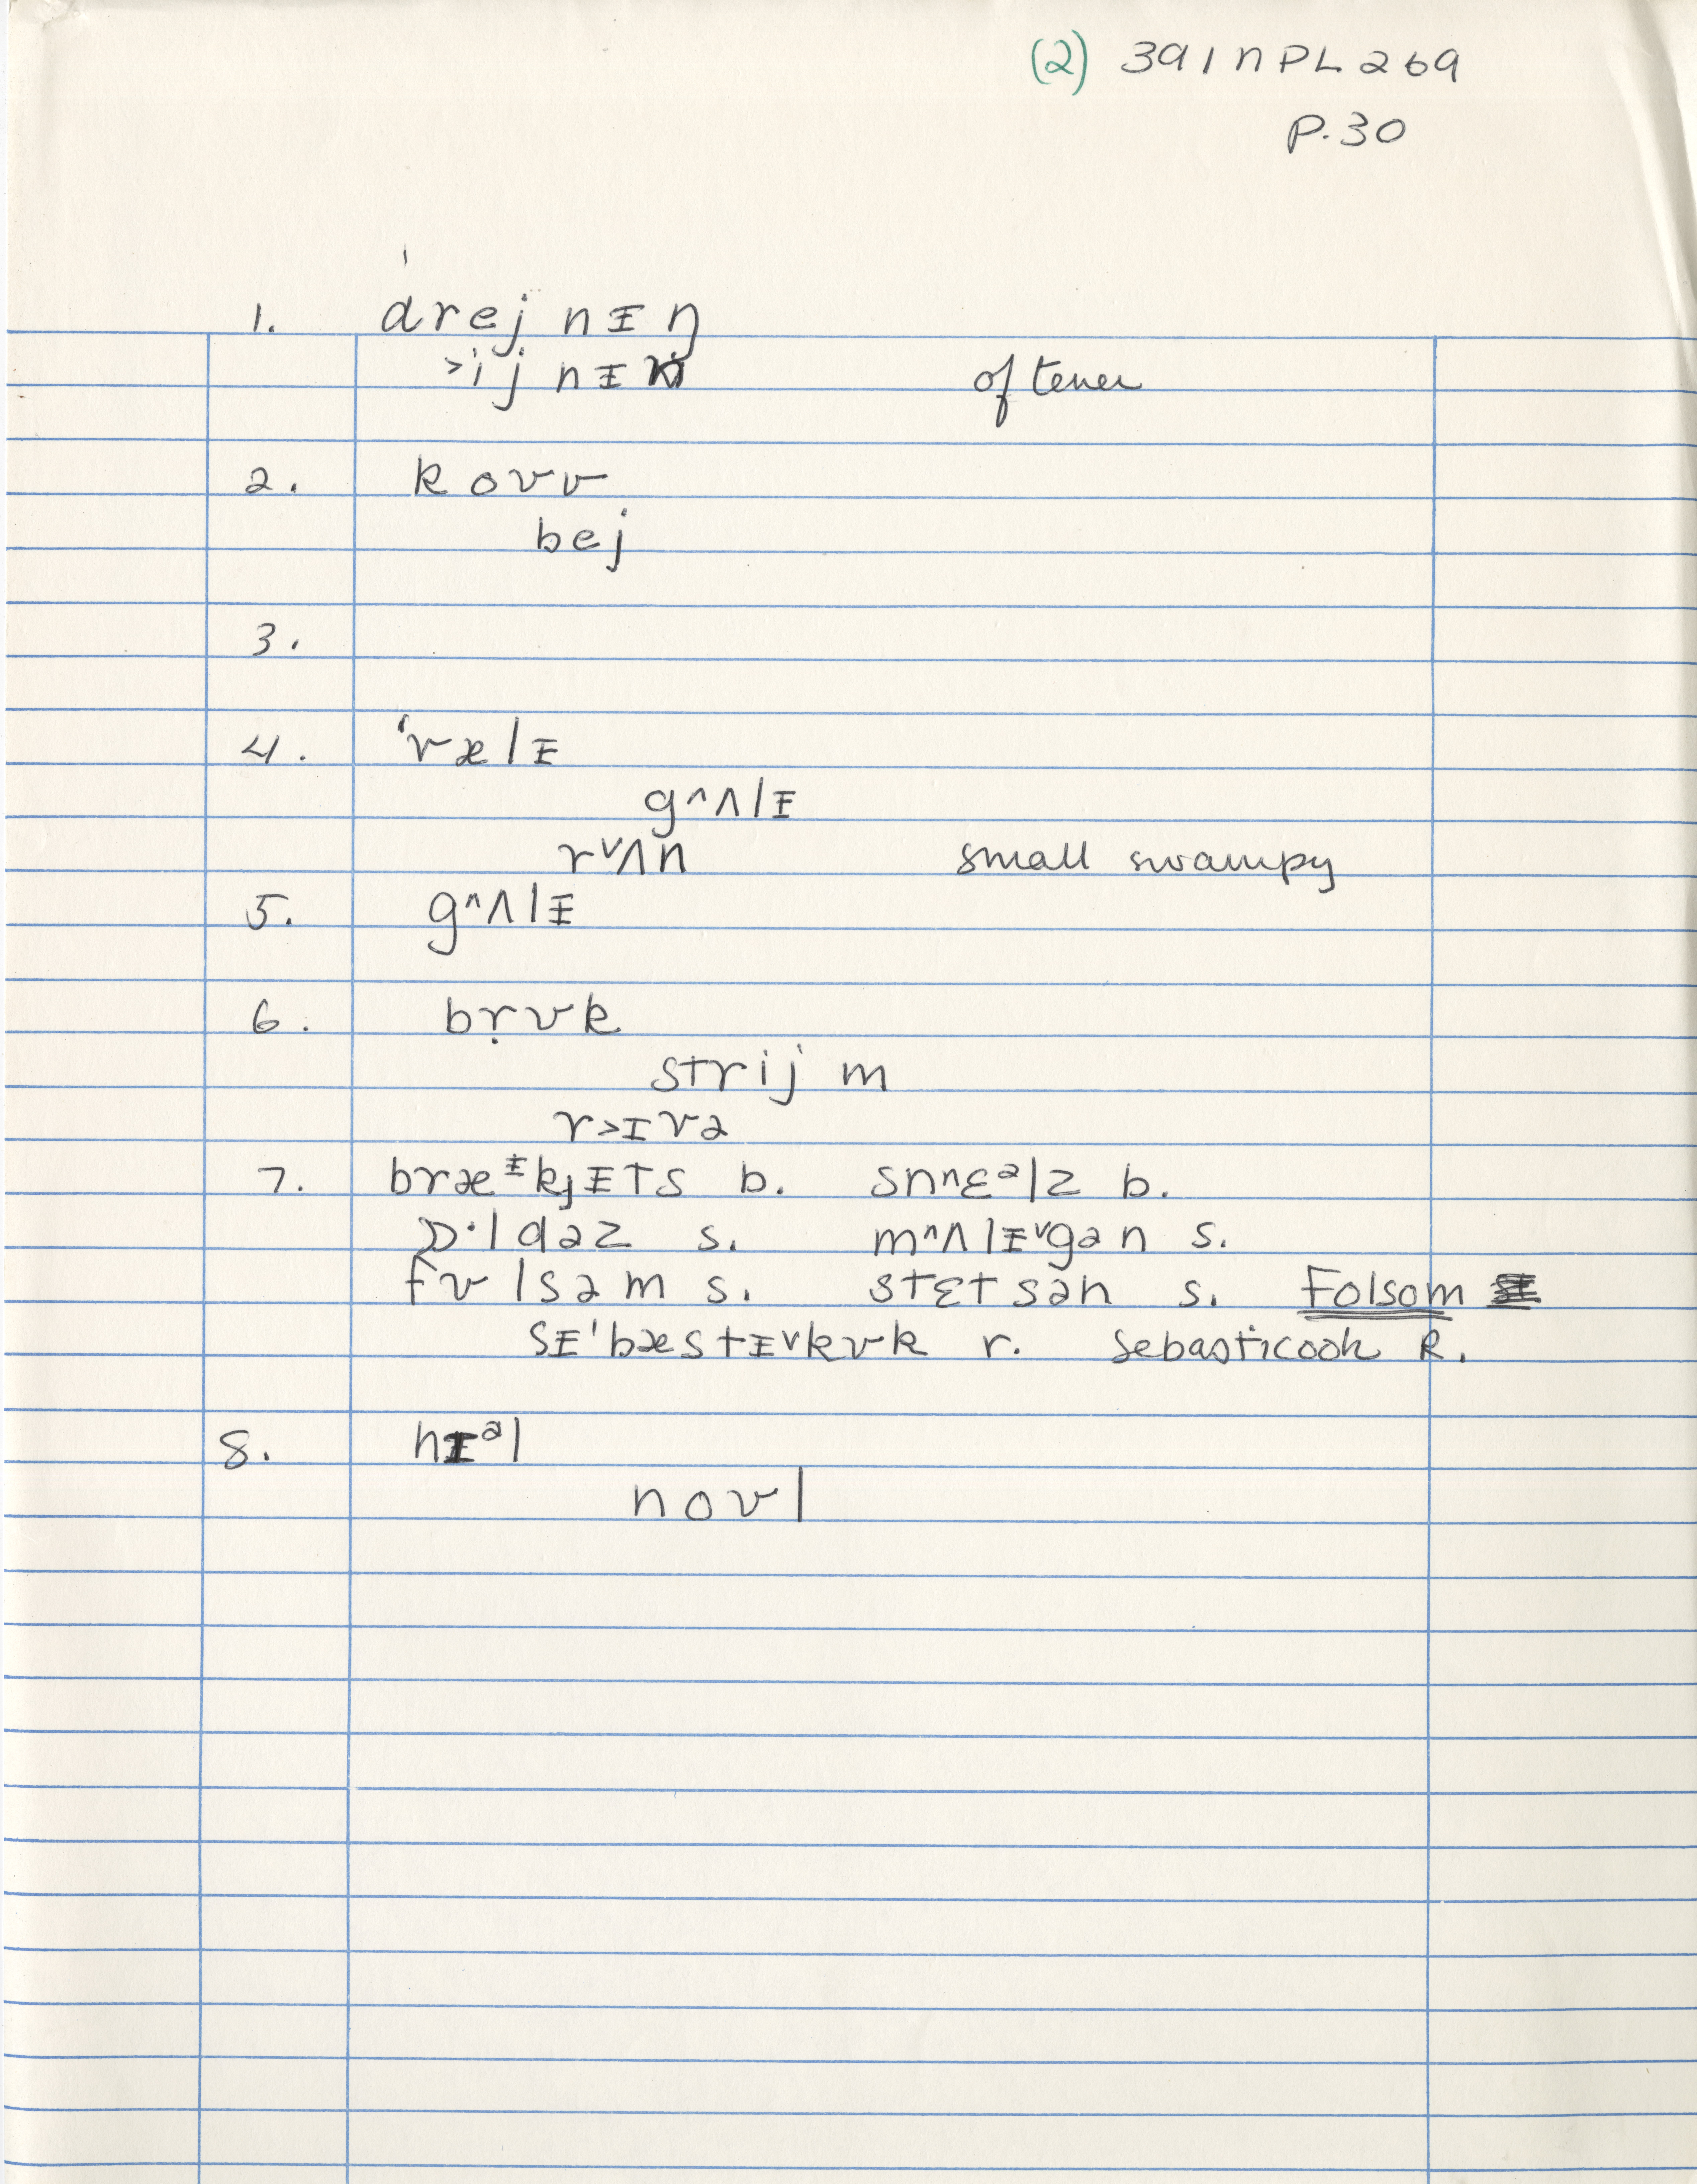 (2) 391nPL269
P.30
1. drejnɪŋ
˃ijnɪŋ oftener
2. koʊv
bej
3.
4. ˈvælɪ
g^ʌlɪ
rᵛʌn small swampy
5. g^ʌlɪ
6. bṛʊk
strijm
r˃ɪvə
7. bræᶤkjɪts b. snⁿɛᵊlz b.
ɒ·ldəz s. m^ʌlɪᵛgən s.
fʊlsəm s. stɛtsən s. Folsom
sɪ'bæstɪᵛkʊk r. Sebasticook R.
8. hɪᵊl
noʊl